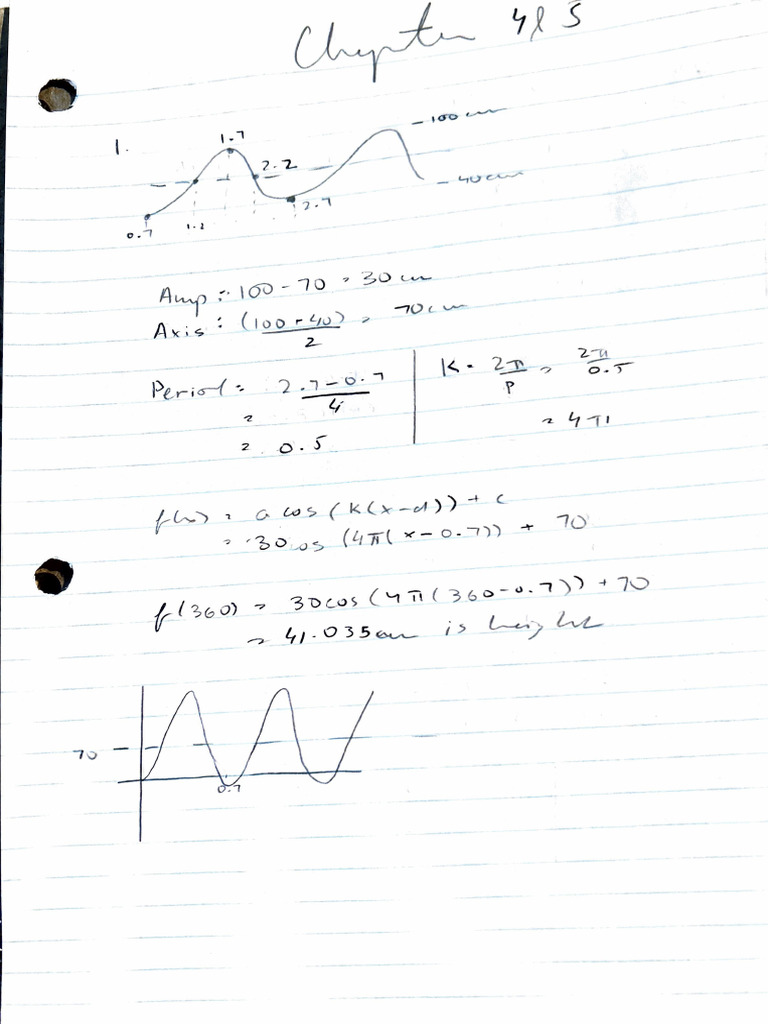 Chapter 4 & 5
1.
1.7
- 100 cm
2.2
- 40 cm
2.7
0.7
1.2
Amp : 100 - 70 = 30 cm
Axis : (100 + 40) / 2 = 70 cm
Period = 2.7 - 0.7 / 4
=
= 0.5
K = 2π / P = 2π / 0.5
= 4π
f(x) = a cos (k(x-d)) + c
= 30 cos (4π(x - 0.7)) + 70
f(360) = 30 cos (4π(360 - 0.7)) + 70
= 41.035 cm is height
70
0.7